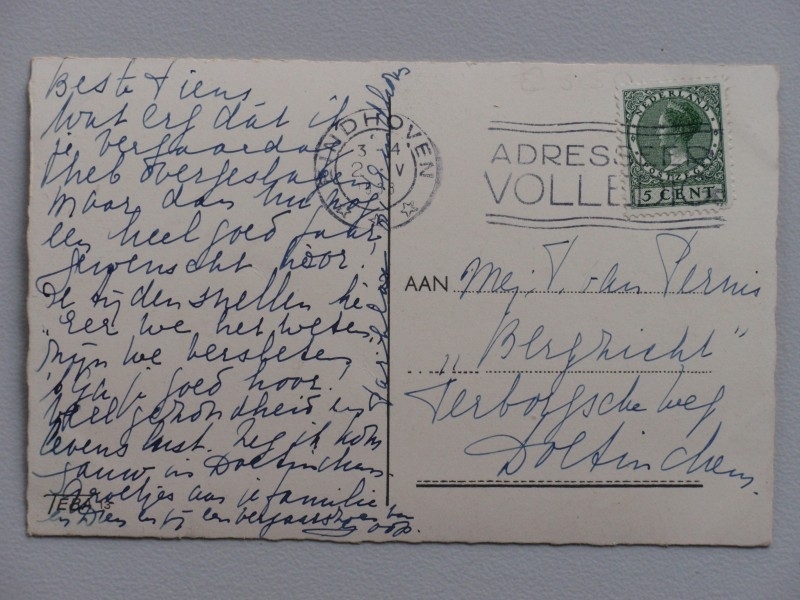 Beste Tiens
wat erg dat ik
je verjaardag
heb overgeslagen
maar dan nu nog
een heel goed jaar
gewenscht hoor!
De tijden snellen
"Eer we het weten,
zijn we versleten,
goed hoor!
veel gezondheid en
levens lust. Zeg ik kom
gauw in Doetinchem.
Groetjes aan je familie
en Dien en jij een verjaarszoen van
Joop.
TEBA 13
EINDHOVEN
ADRESSEER
VOLLE
NEDERLAND
5 CENT
AAN Mej. T. van Pernis
"Bergzicht"
Terborgsche weg
Doetinchem.